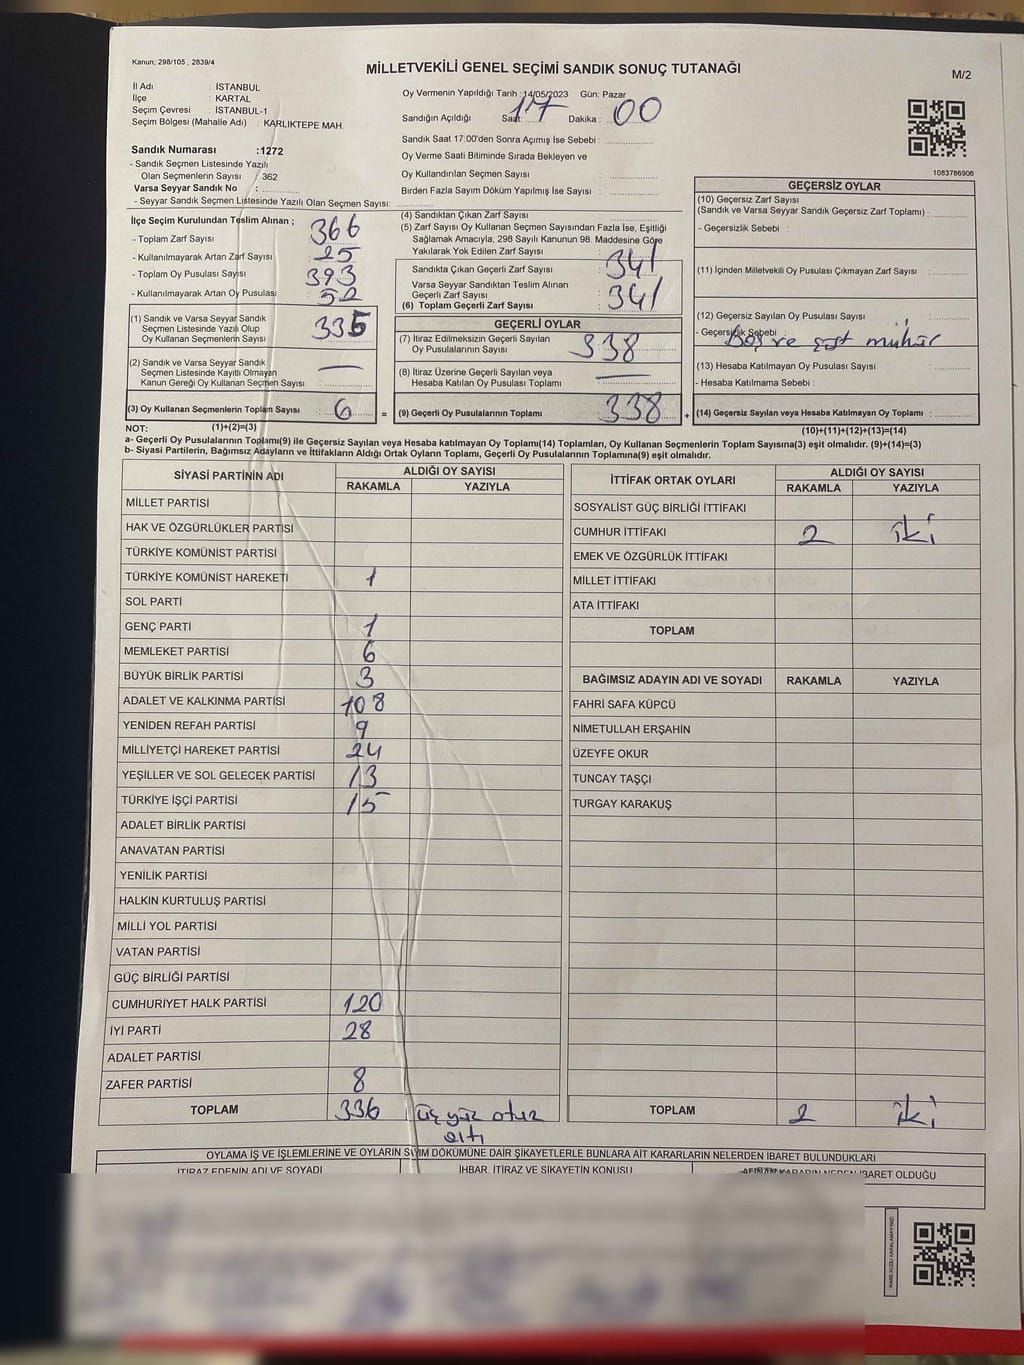 Kanun; 298/105 , 2839/4
MİLLETVEKİLİ GENEL SEÇİMİ SANDIK SONUÇ TUTANAĞI
M/2
İl Adı : İSTANBUL
İlçe : KARTAL
Seçim Çevresi : İSTANBUL-1
Seçim Bölgesi (Mahalle Adı) : KARLIKTEPE MAH.
Sandık Numarası :1272
- Sandık Seçmen Listesinde Yazılı
Olan Seçmenlerin Sayısı : 362
Varsa Seyyar Sandık No :
- Seyyar Sandık Seçmen Listesinde Yazılı Olan Seçmen Sayısı:
Oy Vermenin Yapıldığı Tarih :14/05/2023 Gün: Pazar
Sandığın Açıldığı Saat: 17 Dakika : 00
Sandık Saat 17:00'den Sonra Açımış İse Sebebi :
Oy Verme Saati Bitiminde Sırada Bekleyen ve
Oy Kullandırılan Seçmen Sayısı :
Birden Fazla Sayım Döküm Yapılmış İse Sayısı :
1083786906
İlçe Seçim Kurulundan Teslim Alınan ;
- Toplam Zarf Sayısı : 366
- Kullanılmayarak Artan Zarf Sayısı : 25
- Toplam Oy Pusulası Sayısı : 393
- Kullanılmayarak Artan Oy Pusulası : 52
(1) Sandık ve Varsa Seyyar Sandık
Seçmen Listesinde Yazılı Olup
Oy Kullanan Seçmenlerin Sayısı : 335
(2) Sandık ve Varsa Seyyar Sandık
Seçmen Listesinde Kayıtlı Olmayan
Kanun Gereği Oy Kullanan Seçmen Sayısı : —
(3) Oy Kullanan Seçmenlerin Toplam Sayısı : 6 =
(1)+(2)=(3)
(4) Sandıktan Çıkan Zarf Sayısı :
(5) Zarf Sayısı Oy Kullanan Seçmen Sayısından Fazla İse, Eşitliği
Sağlamak Amacıyla; 298 Sayılı Kanunun 98. Maddesine Göre
Yakılarak Yok Edilen Zarf Sayısı :
Sandıkta Çıkan Geçerli Zarf Sayısı : 341
Varsa Seyyar Sandıktan Teslim Alınan
Geçerli Zarf Sayısı :
(6) Toplam Geçerli Zarf Sayısı : 341
GEÇERLİ OYLAR
(7) İtiraz Edilmeksizin Geçerli Sayılan
Oy Pusulalarının Sayısı : 338
(8) İtiraz Üzerine Geçerli Sayılan veya
Hesaba Katılan Oy Pusulası Toplamı : —
(9) Geçerli Oy Pusulalarının Toplamı : 338 +
GEÇERSİZ OYLAR
(10) Geçersiz Zarf Sayısı
(Sandık ve Varsa Seyyar Sandık Geçersiz Zarf Toplamı) :
- Geçersizlik Sebebi :
(11) İçinden Milletvekili Oy Pusulası Çıkmayan Zarf Sayısı :
(12) Geçersiz Sayılan Oy Pusulası Sayısı :
- Geçersizlik Sebebi : Boş ve mühür
(13) Hesaba Katılmayan Oy Pusulası Sayısı :
- Hesaba Katılmama Sebebi :
(14) Geçersiz Sayılan veya Hesaba Katılmayan Oy Toplamı :
(10)+(11)+(12)+(13)=(14)
NOT:
a- Geçerli Oy Pusulalarının Toplamı(9) ile Geçersiz Sayılan veya Hesaba katılmayan Oy Toplamı(14) Toplamları, Oy Kullanan Seçmenlerin Toplam Sayısına(3) eşit olmalıdır. (9)+(14)=(3)
b- Siyasi Partilerin, Bağımsız Adayların ve İttifakların Aldığı Ortak Oyların Toplamı, Geçerli Oy Pusulalarının Toplamına(9) eşit olmalıdır.
SİYASİ PARTİNİN ADI ALDIĞI OY SAYISI
RAKAMLA YAZIYLA
MİLLET PARTİSİ
HAK VE ÖZGÜRLÜKLER PARTİSİ
TÜRKİYE KOMÜNİST PARTİSİ
TÜRKİYE KOMÜNİST HAREKETİ 1
SOL PARTİ
GENÇ PARTİ 1
MEMLEKET PARTİSİ 6
BÜYÜK BİRLİK PARTİSİ 3
ADALET VE KALKINMA PARTİSİ 108
YENİDEN REFAH PARTİSİ 9
MİLLİYETÇİ HAREKET PARTİSİ 24
YEŞİLLER VE SOL GELECEK PARTİSİ 13
TÜRKİYE İŞÇİ PARTİSİ 15
ADALET BİRLİK PARTİSİ
ANAVATAN PARTİSİ
YENİLİK PARTİSİ
HALKIN KURTULUŞ PARTİSİ
MİLLİ YOL PARTİSİ
VATAN PARTİSİ
GÜÇ BİRLİĞİ PARTİSİ
CUMHURİYET HALK PARTİSİ 120
İYİ PARTİ 28
ADALET PARTİSİ
ZAFER PARTİSİ 8
TOPLAM 336 üç yüz otuz
altı
İTTİFAK ORTAK OYLARI ALDIĞI OY SAYISI
RAKAMLA YAZIYLA
SOSYALİST GÜÇ BİRLİĞİ İTTİFAKI
CUMHUR İTTİFAKI 2 iki
EMEK VE ÖZGÜRLÜK İTTİFAKI
MİLLET İTTİFAKI
ATA İTTİFAKI
TOPLAM
BAĞIMSIZ ADAYIN ADI VE SOYADI RAKAMLA YAZIYLA
FAHRİ SAFA KÜPCÜ
NİMETULLAH ERŞAHİN
ÜZEYFE OKUR
TUNCAY TAŞÇI
TURGAY KARAKUŞ
TOPLAM 2 iki
OYLAMA İŞ VE İŞLEMLERİNE VE OYLARIN SAYIM DÖKÜMÜNE DAİR ŞİKAYETLERLE BUNLARA AİT KARARLARIN NELERDEN İBARET BULUNDUKLARI
İTİRAZ EDENİN ADI VE SOYADI İHBAR, İTİRAZ VE ŞİKAYETİN KONUSU KARARIN NEDEN İBARET OLDUĞU